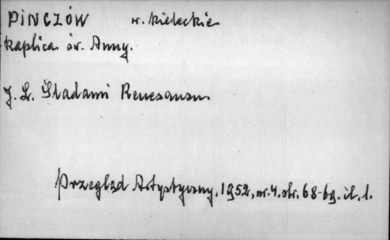 PINCZÓW w. kieleckie
kaplica św. Anny.
J. L. Śladami Renesansu.
Przegląd Artystyczny. 1952, nr. 4. str. 68-69. il. 1.